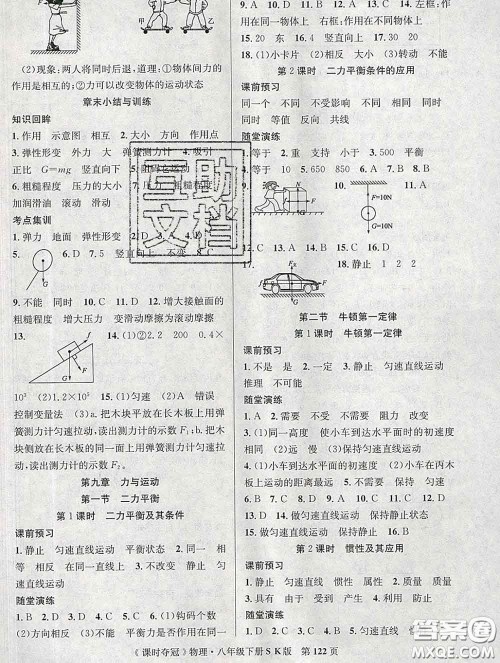 甲 乙
(2)现象:两人将同时后退,道理:①物体间力的
作用是相互的;②力可以改变物体的运动状态
章末小结与训练
知识回眸
1. 作用 示意图 相互 2. 大小 方向 作用点
3. 弹性形变 外力 大 弹簧测力计 4. 吸引
正比 G=mg 竖直向下 5.
6. 粗糙程度 压力的大小
加润滑油 滚动 滑动
考点集训
1. 弹力 地面 弹性形变
5. 竖直向下 不变 8. C
G
9. 不能 同时 10. C 11. D 12. 增大接触面的
粗糙程度 增大压力 变滚动摩擦为滑动摩擦
13. 14. (1)①2.2 200 0.4×
F
G
10⁵ (2)1.2×10⁵ 15. (1)匀速 (2)A 错误
控制变量法 (3)a.把木块平放在长木板上,用弹
簧测力计匀速拉动,读出测力计的示数F₁ b.把木
块侧放在长木板的同一表面上,用弹簧测力计匀速
拉动,读出测力计的示数F₂.
第九章 力与运动
第一节 二力平衡
第1课时 二力平衡及其条件
课前预习
1. 静止 匀速直线运动 平衡状态 2. 在同一 相
等 相反 在同一直线上
随堂演练
1. B 2. D 3. A 4. D 5. (1)钩码个数
(2)同一直线 (3)B 6. C 7. D 8. A
9. A 10. A 11. B 12. C 13. C 14. 左框:作
用在同一物体上 右框:作用在不同物体上
15. 20 4 竖直向上 16. D 17. 30 20
18. (1)小卡片 (2)相反 大小 (3)转动 不能
第2课时 二力平衡条件的应用
课前预习
同一个 不同 不受影响 不相同 相同 同时
同时 等值 反向 共线
随堂演练
1. 等于 2. 重 支持 小于 3. 500 平衡
4. 等于 10 5. 650 850 6. A 7. D 8. D
9. B 10. A 11. B 12.
F=10N
G=10N
13. A 14. C 15. B 16. D
17. 18. 静止 1 2 2
F
G
第二节 牛顿第一定律
第1课时 牛顿第一定律
课前预习
不是 是 不 不受外力 1. 静止 匀速直线运动
推理 不可能
随堂演练
1. A 2. 需要 不受 不需要 改变 3. 不受
速度 惯性 4. (1)使小车到达水面时的初速度
相同 (3)小 高 (4)使小车到达水平面时小车在
水平面上运动的距离最远 (5)保持匀速直线运动
5. 做匀速直线运动 保持静止 6. D 7. B
8. D 9. D 10. 大 慢 匀速直线 11. D
12. D 13. B 14. (1)使小车到达水平面时的速度
相等 (2)远 慢 (3)保持匀速直线运动状态
15. 做匀速直线运动 保持静止 16. B
第2课时 惯性及其应用
课前预习
1. 静止 匀速直线运动 惯性 属性 2. 质量
质量 惯性 质量
随堂演练
1. D 2. D 3. C 4. C 5. D 6. B 7. B
《课时夺冠》物理·八年级下册SK版 第122页
互助文档
答案圈
MXQE.COM